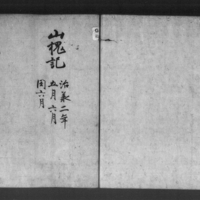 山槐記
治承二年
五月 六月
閏六月